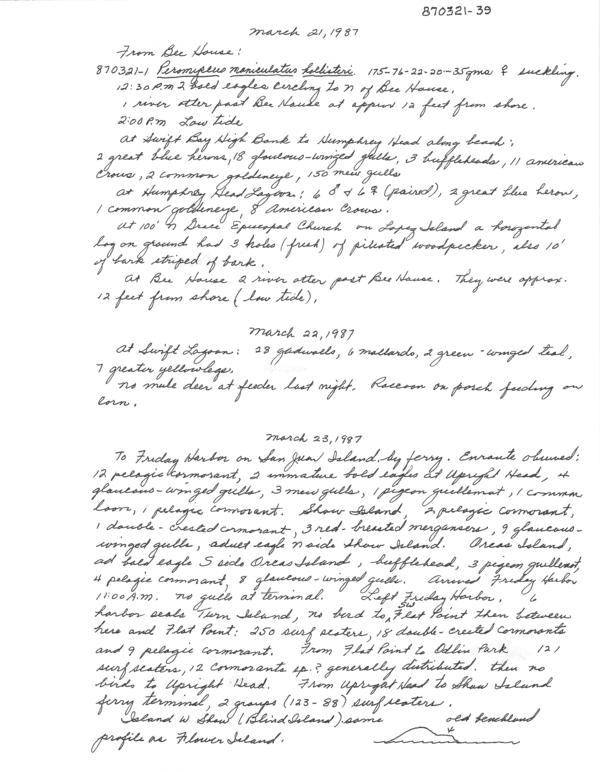 870321-39
March 21, 1987
From Bee House:
870321-1 Peromyscus maniculatus hollisteri. 175-76-22-20-35gms ♀ suckling.
12:30 P.M 2 bald eagles circling to N of Bee House.
1 river otter past Bee House at approx 12 feet from shore.
2:00 P.M Low tide
At Swift Bay High Bank to Humphrey Head along beach:
2 great blue herons, 18 glaucous-winged gulls, 3 buffleheads, 11 american
Crows, 2 common goldeneye, 150 mew gulls
At Humphrey Head Lagoon: 6 ♂ & 6 ♀ (paired), 2 great blue heron,
1 common goldeneye, 8 American Crows.
At 100' N Grace Episcopal Church on Lopez Island a horozontal
log on ground had 3 holes (fresh) of pileated woodpecker, also 10'
of bark striped of bark.
At Bee House 2 river otter past Bee House. They were approx.
12 feet from shore (low tide).
March 22, 1987
At Swift Lagoon: 28 gadwalls, 6 mallards, 2 green-winged teal,
7 greater yellowlegs.
No mule deer at feeder last night. Raccoon on porch feeding on
corn.
March 23, 1987
To Friday Harbor on San Juan Island by ferry. Enroute observed:
12 pelagic cormorant, 2 immature bald eagles at Upright Head, 4
glaucous-winged gulls, 3 mew gulls, 1 pigeon guillemot, 1 common
loon, 1 pelagic cormorant. Shaw Island, 2 pelagic cormorant,
1 double-crested cormorant, 3 red-breasted mergansers, 9 glaucous-
winged gulls, adult eagle N side Shaw Island. Orcas Island,
ad bald eagle S side Orcas Island, bufflehead, 3 pigeon guillemot,
4 pelagic cormorant, 8 glaucous-winged gulls. Arrived Friday Harbor
11:00 A.M. no gulls at terminal. Left Friday Harbor. 6
harbor seals Turn Island, no bird to SW Flat Point then between
here and Flat Point: 250 surf scoters, 18 double-crested cormorants
and 9 pelagic cormorant. From Flat Point to Odlin Park 121
surf scoters, 12 Cormorants sp.? generally distributed. then no
birds to Upright Head. From Upright Head to Shaw Island
ferry terminal, 2 groups (123-88) surf scoters.
Island W Shaw (Blind Island) same old benchland
profile as Flower Island.